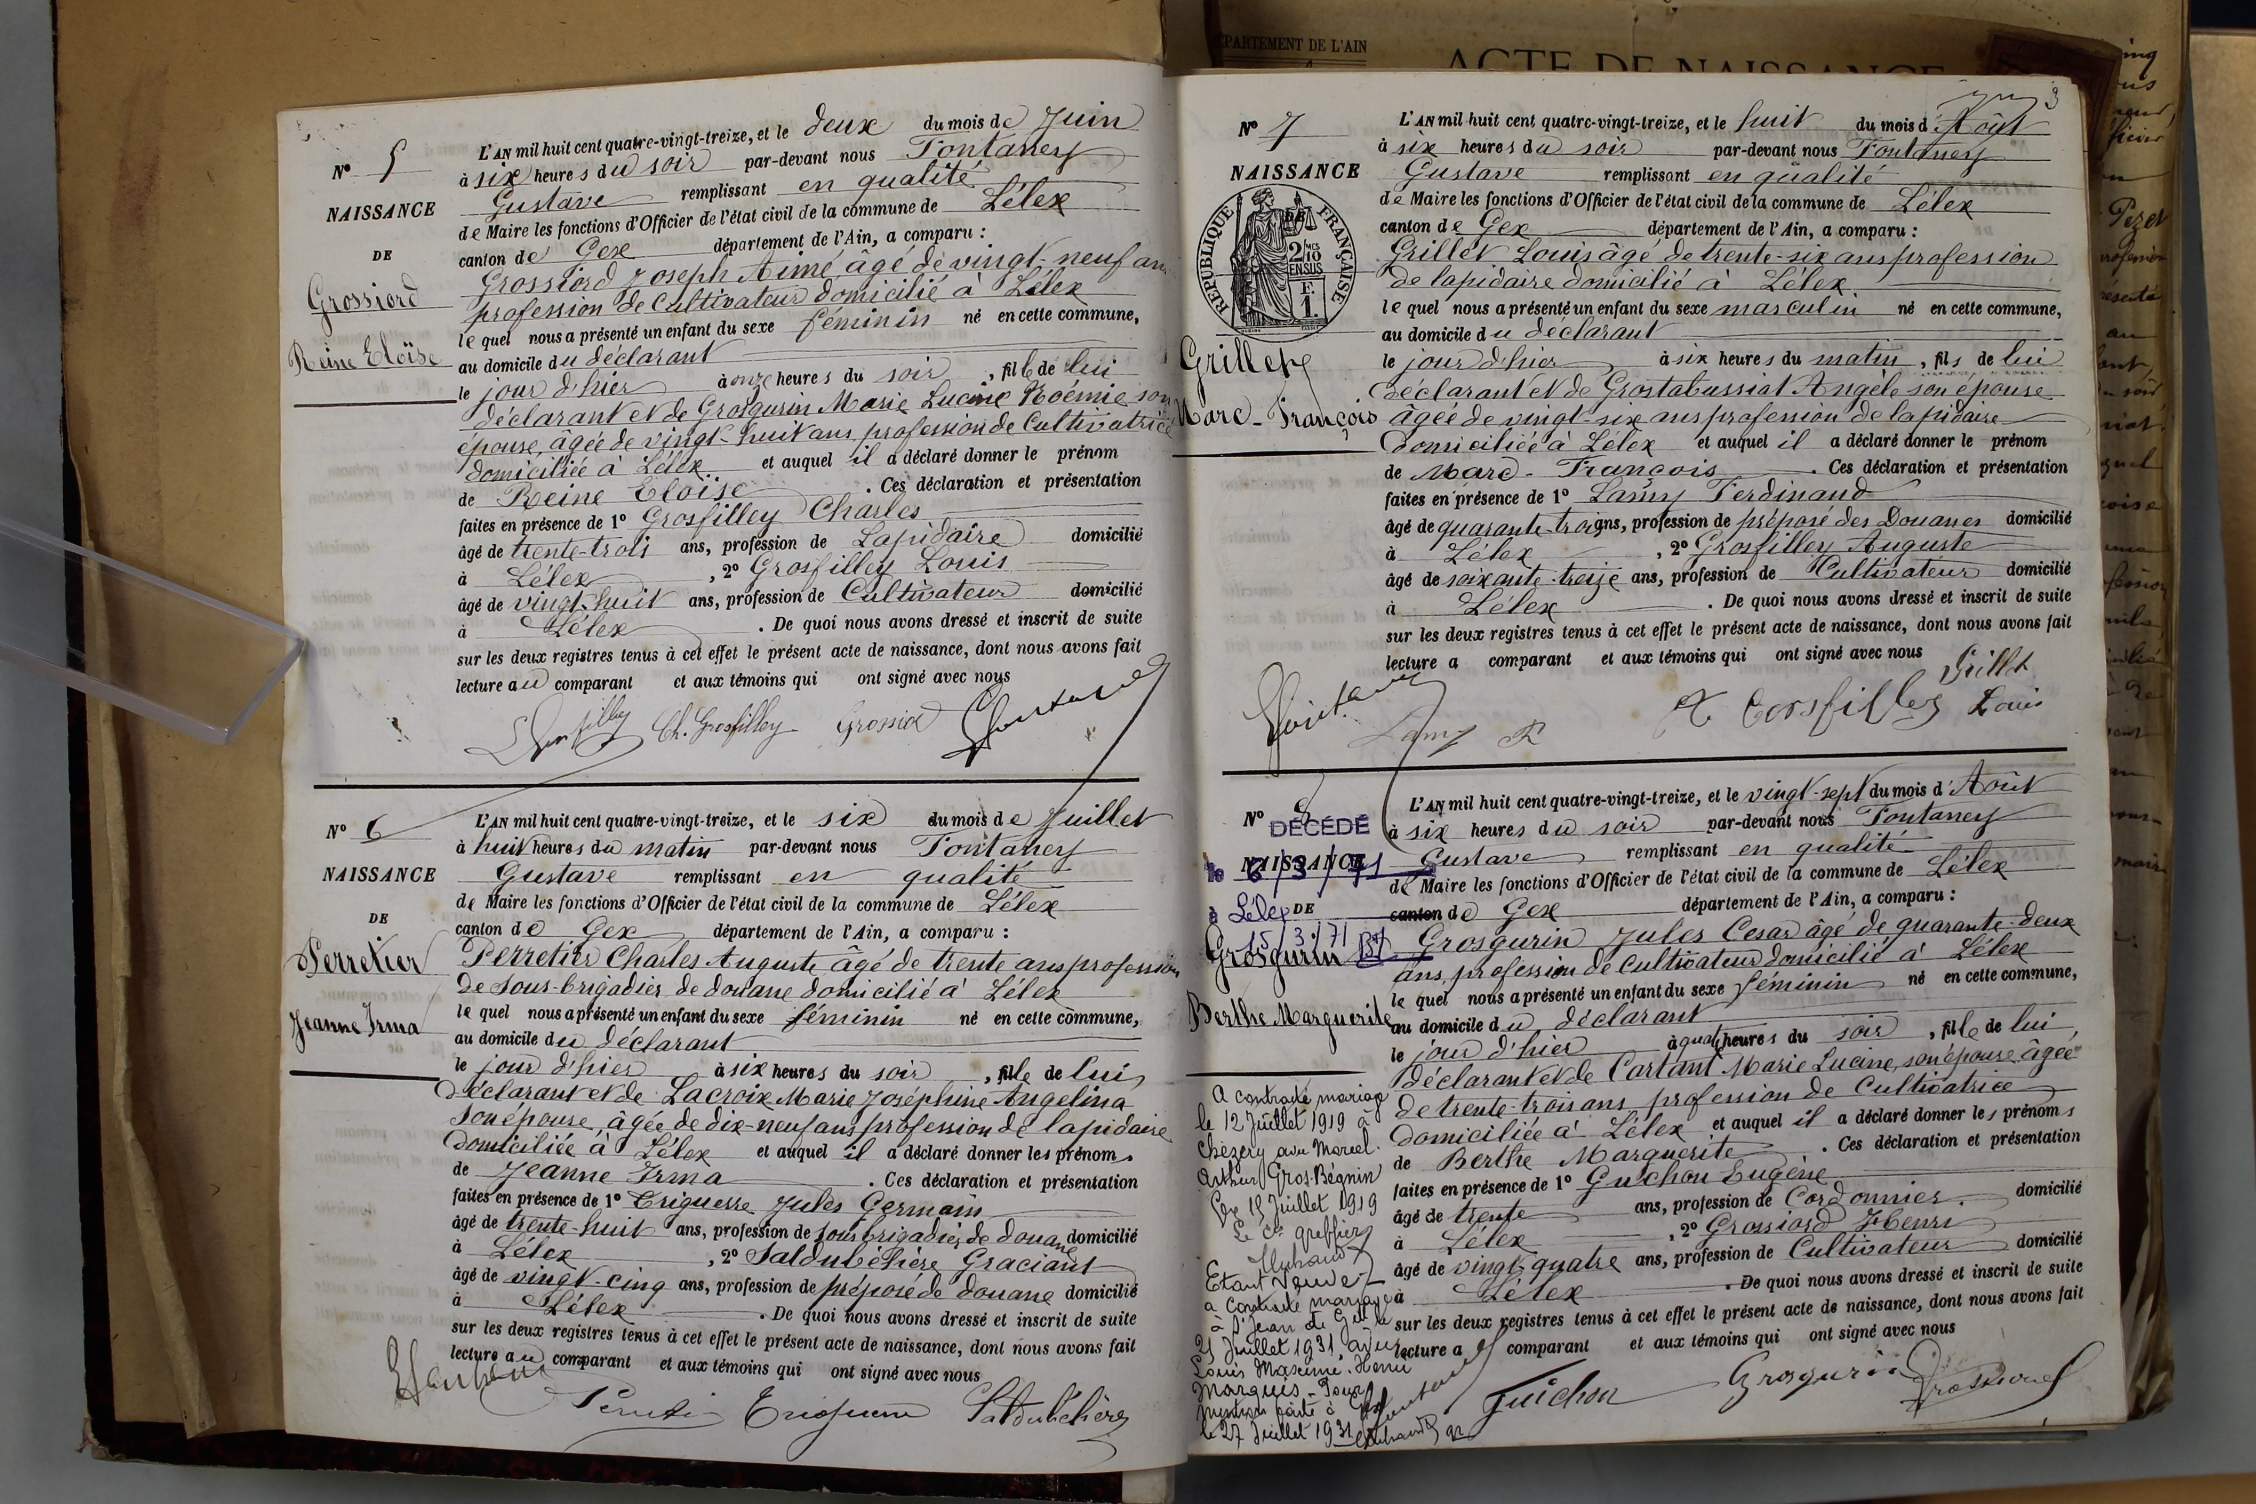 N° 5
NAISSANCE
DE
Grossiord
Reine Eloïse
L'AN mil huit cent quatre-vingt-treize, et le deux du mois de Juin
à six heures du soir par-devant nous Fontaney
Gustave remplissant en qualité
de Maire les fonctions d'Officier de l'état civil de la commune de Lélex
canton de Gex département de l'Ain, a comparu :
Grossiord Joseph Aimé âgé de vingt-neuf ans
profession de Cultivateur domicilié à Lélex
lequel nous a présenté un enfant du sexe féminin né en cette commune,
au domicile du déclarant
le jour d'hier à onze heures du soir, fille de lui
déclarant et de Grosgurin Marie Lucine Noémie son
épouse, âgée de vingt-huit ans profession de Cultivatrice
domiciliée à Lélex et auquel il a déclaré donner le prénom
de Reine Eloïse. Ces déclaration et présentation
faites en présence de 1° Grosfilley Charles
âgé de trente-trois ans, profession de Lapidaire domicilié
à Lélex, 2° Grosfilley Louis
âgé de vingt-huit ans, profession de Cultivateur domicilié
à Lélex. De quoi nous avons dressé et inscrit de suite
sur les deux registres tenus à cet effet le présent acte de naissance, dont nous avons fait
lecture au comparant et aux témoins qui ont signé avec nous
Ch. Grosfilley Grossiord
N° 6
NAISSANCE
DE
Perretier
Jeanne Irma
L'AN mil huit cent quatre-vingt-treize, et le six du mois de Juillet
à huit heures du matin par-devant nous Fontaney
Gustave remplissant en qualité
de Maire les fonctions d'Officier de l'état civil de la commune de Lélex
canton de Gex département de l'Ain, a comparu :
Perretier Charles Auguste âgé de trente ans profession
de Sous-brigadier de douane domicilié à Lélex
lequel nous a présenté un enfant du sexe féminin né en cette commune,
au domicile du déclarant
le jour d'hier à six heures du soir, fille de lui
déclarant et de Lacroix Marie Joséphine Angelina
son épouse, âgée de dix-neuf ans profession de lapidaire
domiciliée à Lélex et auquel il a déclaré donner les prénoms
de Jeanne Irma. Ces déclaration et présentation
faites en présence de 1° Triguerre Jules Germain
âgé de trente-huit ans, profession de sous brigadier de douane domicilié
à Lélex, 2° Saldubéhère Graciant
âgé de vingt-cinq ans, profession de préposé de douane domicilié
à Lélex. De quoi nous avons dressé et inscrit de suite
sur les deux registres tenus à cet effet le présent acte de naissance, dont nous avons fait
lecture au comparant et aux témoins qui ont signé avec nous
Saldubéhère
DÉPARTEMENT DE L'AIN
ACTE DE NAISSANCE
3
N° 7
NAISSANCE
DE
RÉPUBLIQUE FRANÇAISE
2/10 EN SUS
F. 1.
Grillet
Marc-François
L'AN mil huit cent quatre-vingt-treize, et le huit du mois d'Août
à six heures du soir par-devant nous Fontaney
Gustave remplissant en qualité
de Maire les fonctions d'Officier de l'état civil de la commune de Lélex
canton de Gex département de l'Ain, a comparu :
Grillet Louis âgé de trente-six ans profession
de lapidaire domicilié à Lélex
lequel nous a présenté un enfant du sexe masculin né en cette commune,
au domicile du déclarant
le jour d'hier à six heures du matin, fils de lui
déclarant et de Grostabussiat Angèle son épouse
âgée de vingt-six ans profession de lapidaire
domiciliée à Lélex et auquel il a déclaré donner le prénom
de Marc-François. Ces déclaration et présentation
faites en présence de 1° Lamy Ferdinand
âgé de quarante-trois ans, profession de préposé des Douanes domicilié
à Lélex, 2° Grosfilley Auguste
âgé de soixante-treize ans, profession de Cultivateur domicilié
à Lélex. De quoi nous avons dressé et inscrit de suite
sur les deux registres tenus à cet effet le présent acte de naissance, dont nous avons fait
lecture a comparant et aux témoins qui ont signé avec nous
Grillet
Louis
Lamy F
N° 8
DÉCÉDÉ
NAISSANCE
le 6/3/71
à Lélex
DE
15/3/71
Grosgurin
Berthe Marguerite
L'AN mil huit cent quatre-vingt-treize, et le vingt-sept du mois d'Août
à six heures du soir par-devant nous Fontaney
Gustave remplissant en qualité
de Maire les fonctions d'Officier de l'état civil de la commune de Lélex
canton de Gex département de l'Ain, a comparu :
Grosgurin Jules Cesar âgé de quarante-deux
ans, profession de Cultivateur domicilié à Lélex
lequel nous a présenté un enfant du sexe féminin né en cette commune,
au domicile du déclarant
le jour d'hier à quatre heures du soir, fille de lui,
déclarant et de Cartant Marie Lucine, son épouse âgée
de trente-trois ans profession de Cultivatrice
domiciliée à Lélex et auquel il a déclaré donner les prénoms
de Berthe Marguerite. Ces déclaration et présentation
faites en présence de 1° Guichon Eugène
âgé de trente ans, profession de Cordonnier domicilié
à Lélex, 2° Grossiord Henri
âgé de vingt-quatre ans, profession de Cultivateur domicilié
à Lélex. De quoi nous avons dressé et inscrit de suite
sur les deux registres tenus à cet effet le présent acte de naissance, dont nous avons fait
lecture a comparant et aux témoins qui ont signé avec nous
Guichon Grosgurin
A contracté mariage
le 12 Juillet 1919 à
Chézery avec Marcel
Arthur Gros-Bégnin
Gex 15 Juillet 1919
Le Cis greffier
Etant Veuve
a contracté mariage
à St Jean de
21 Juillet 1931 avec
Louis Maxime Henri
Marquis
mention faite à Gex
le 27 Juillet 1931